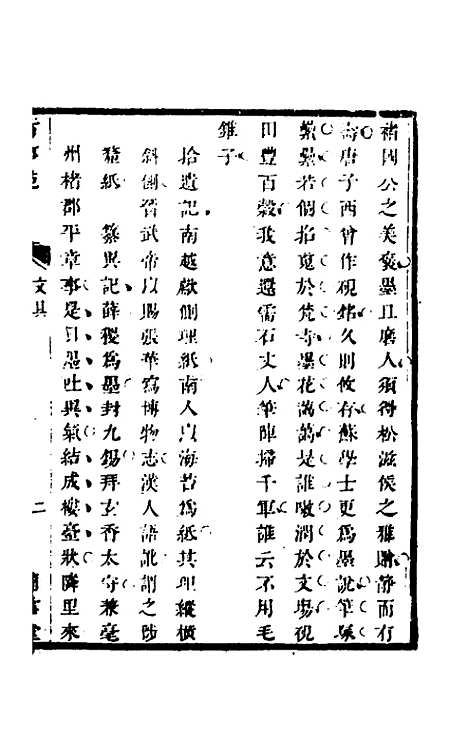 褚國公之美褒墨且磨人須得松滋侯之雅聯靜而有
壽唐子西曾作硯銘久則攸存蘇學士更爲墨說筆塚
纍纍若個掐蒐於梵寺墨花滿滿是誰噀潤於文場視
田豊百穀我意還需石丈人筆陣掃千軍誰云不用毛
錐子
拾遺記南越獻側理紙南人以海苔爲紙其理縱橫
斜側晉武帝以賜張華寫博物志漢人語訛謂之陟
釐紙 纂異記薛稷爲墨封九錫拜玄香太守兼毫
州楮郡平章事是日墨吐異氣結成樓臺狀隣里來
文具
二